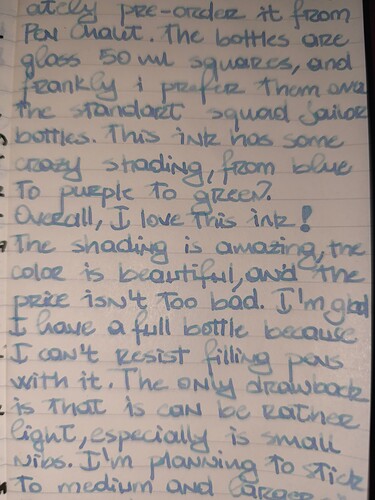 ately pre-order it from
Pen Chalet. The bottles are
glass 50 ml squares, and
frankly i prefer them over
the standart squad Sailor
bottles. This ink has some
crazy shading, from blue
to purple to green?
Overall, I love this ink!
The shading is amazing, the
color is beautiful, and the
price isn't too bad. I'm glad
I have a full bottle because
I can't resist filling pens
with it. The only drawback
is that is can be rather
light, especially is small
nibs. I'm planning to stick
to medium and larger